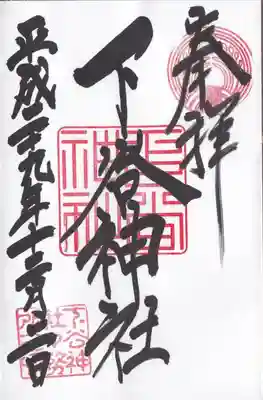 奉拝
下谷神社
平成二十九年十二月二日
下谷
神社
下谷神